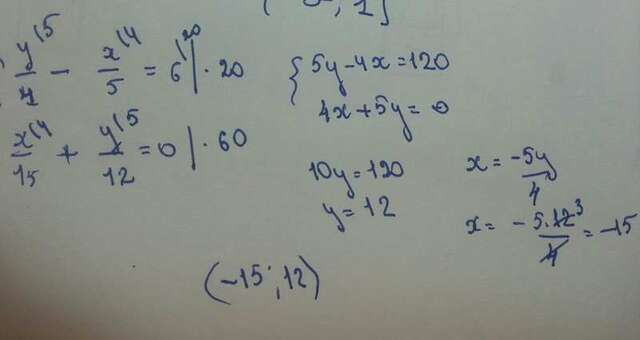 ; 1]
y\5/4 − x\4/5 = 6\20 | · 20
x\4/15 + y\5/12 = 0 | · 60
{ 5y − 4x = 120
4x + 5y = 0
10y = 120
y = 12
x = −5y/4
x = − 5·12³/4 = −15
(−15; 12)